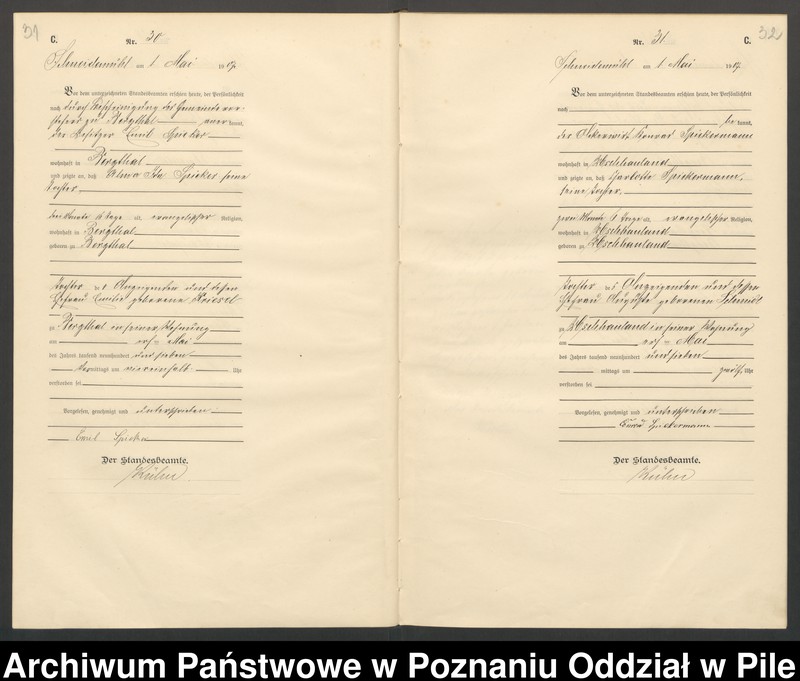 31
C.
Nr. 30
Schneidemühl am 1 Mai 1907
Vor dem unterzeichneten Standesbeamten erschien heute, der Persönlichkeit
nach durch Bescheinigung des Gemeindevor-
stehers zu Bergthal anerkannt,
der Besitzer Emil Spieker
wohnhaft in Bergthal
und zeigte an, daß Ida Spieker seine
Tochter
drei Monate 6 Tage alt, evangelischer Religion,
wohnhaft in Bergthal
geboren zu Bergthal
Tochter des Anzeigenden und dessen
Ehefrau Emilie geborene
zu Bergthal in seiner Wohnung
am ersten Mai
des Jahres tausend neunhundert und sieben
Vormittags um viereinhalb Uhr
verstorben sei
Vorgelesen, genehmigt und unterschrieben
Emil Spieker
Der Standesbeamte.
Kühn
32
C.
Nr. 31
Schneidemühl am 1 Mai 1907
Vor dem unterzeichneten Standesbeamten erschien heute, der Persönlichkeit
nach
bekannt,
der Ackerwirt Konrad Spickermann
wohnhaft in Uschhauland
und zeigte an, daß Charlotte Spickermann,
seine Tochter
zwei Monate 6 Tage alt, evangelischer Religion,
wohnhaft in Uschhauland
geboren zu Uschhauland
Tochter des Anzeigenden und dessen
Ehefrau Auguste geborenen Schmidt
zu Uschhauland in seiner Wohnung
am ersten Mai
des Jahres tausend neunhundert und sieben
mittags um zwölf Uhr
verstorben sei
Vorgelesen, genehmigt und unterschrieben
Spickermann
Der Standesbeamte.
Kühn
Archiwum Państwowe w Poznaniu Oddział w Pile